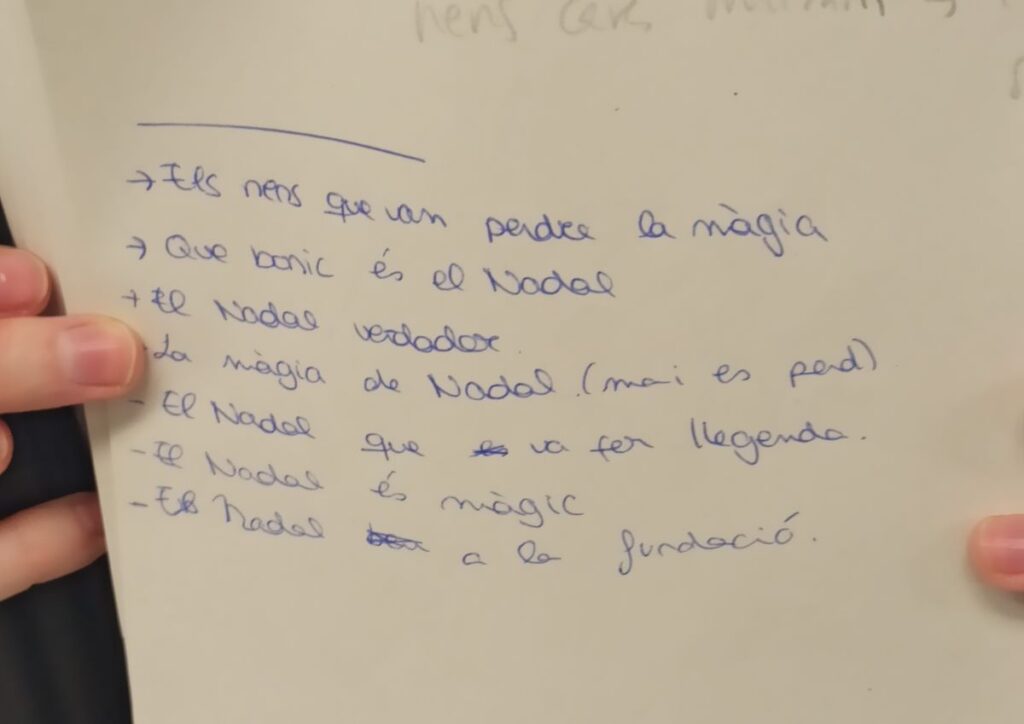 nens
→ Els nens que van perdre la màgia
→ Que bonic és el Nadal
→ El Nadal verdader.
- La màgia de Nadal. (mai es perd)
- El Nadal que va fer llegenda.
- El Nadal és màgic
- El Nadal a la fundació.